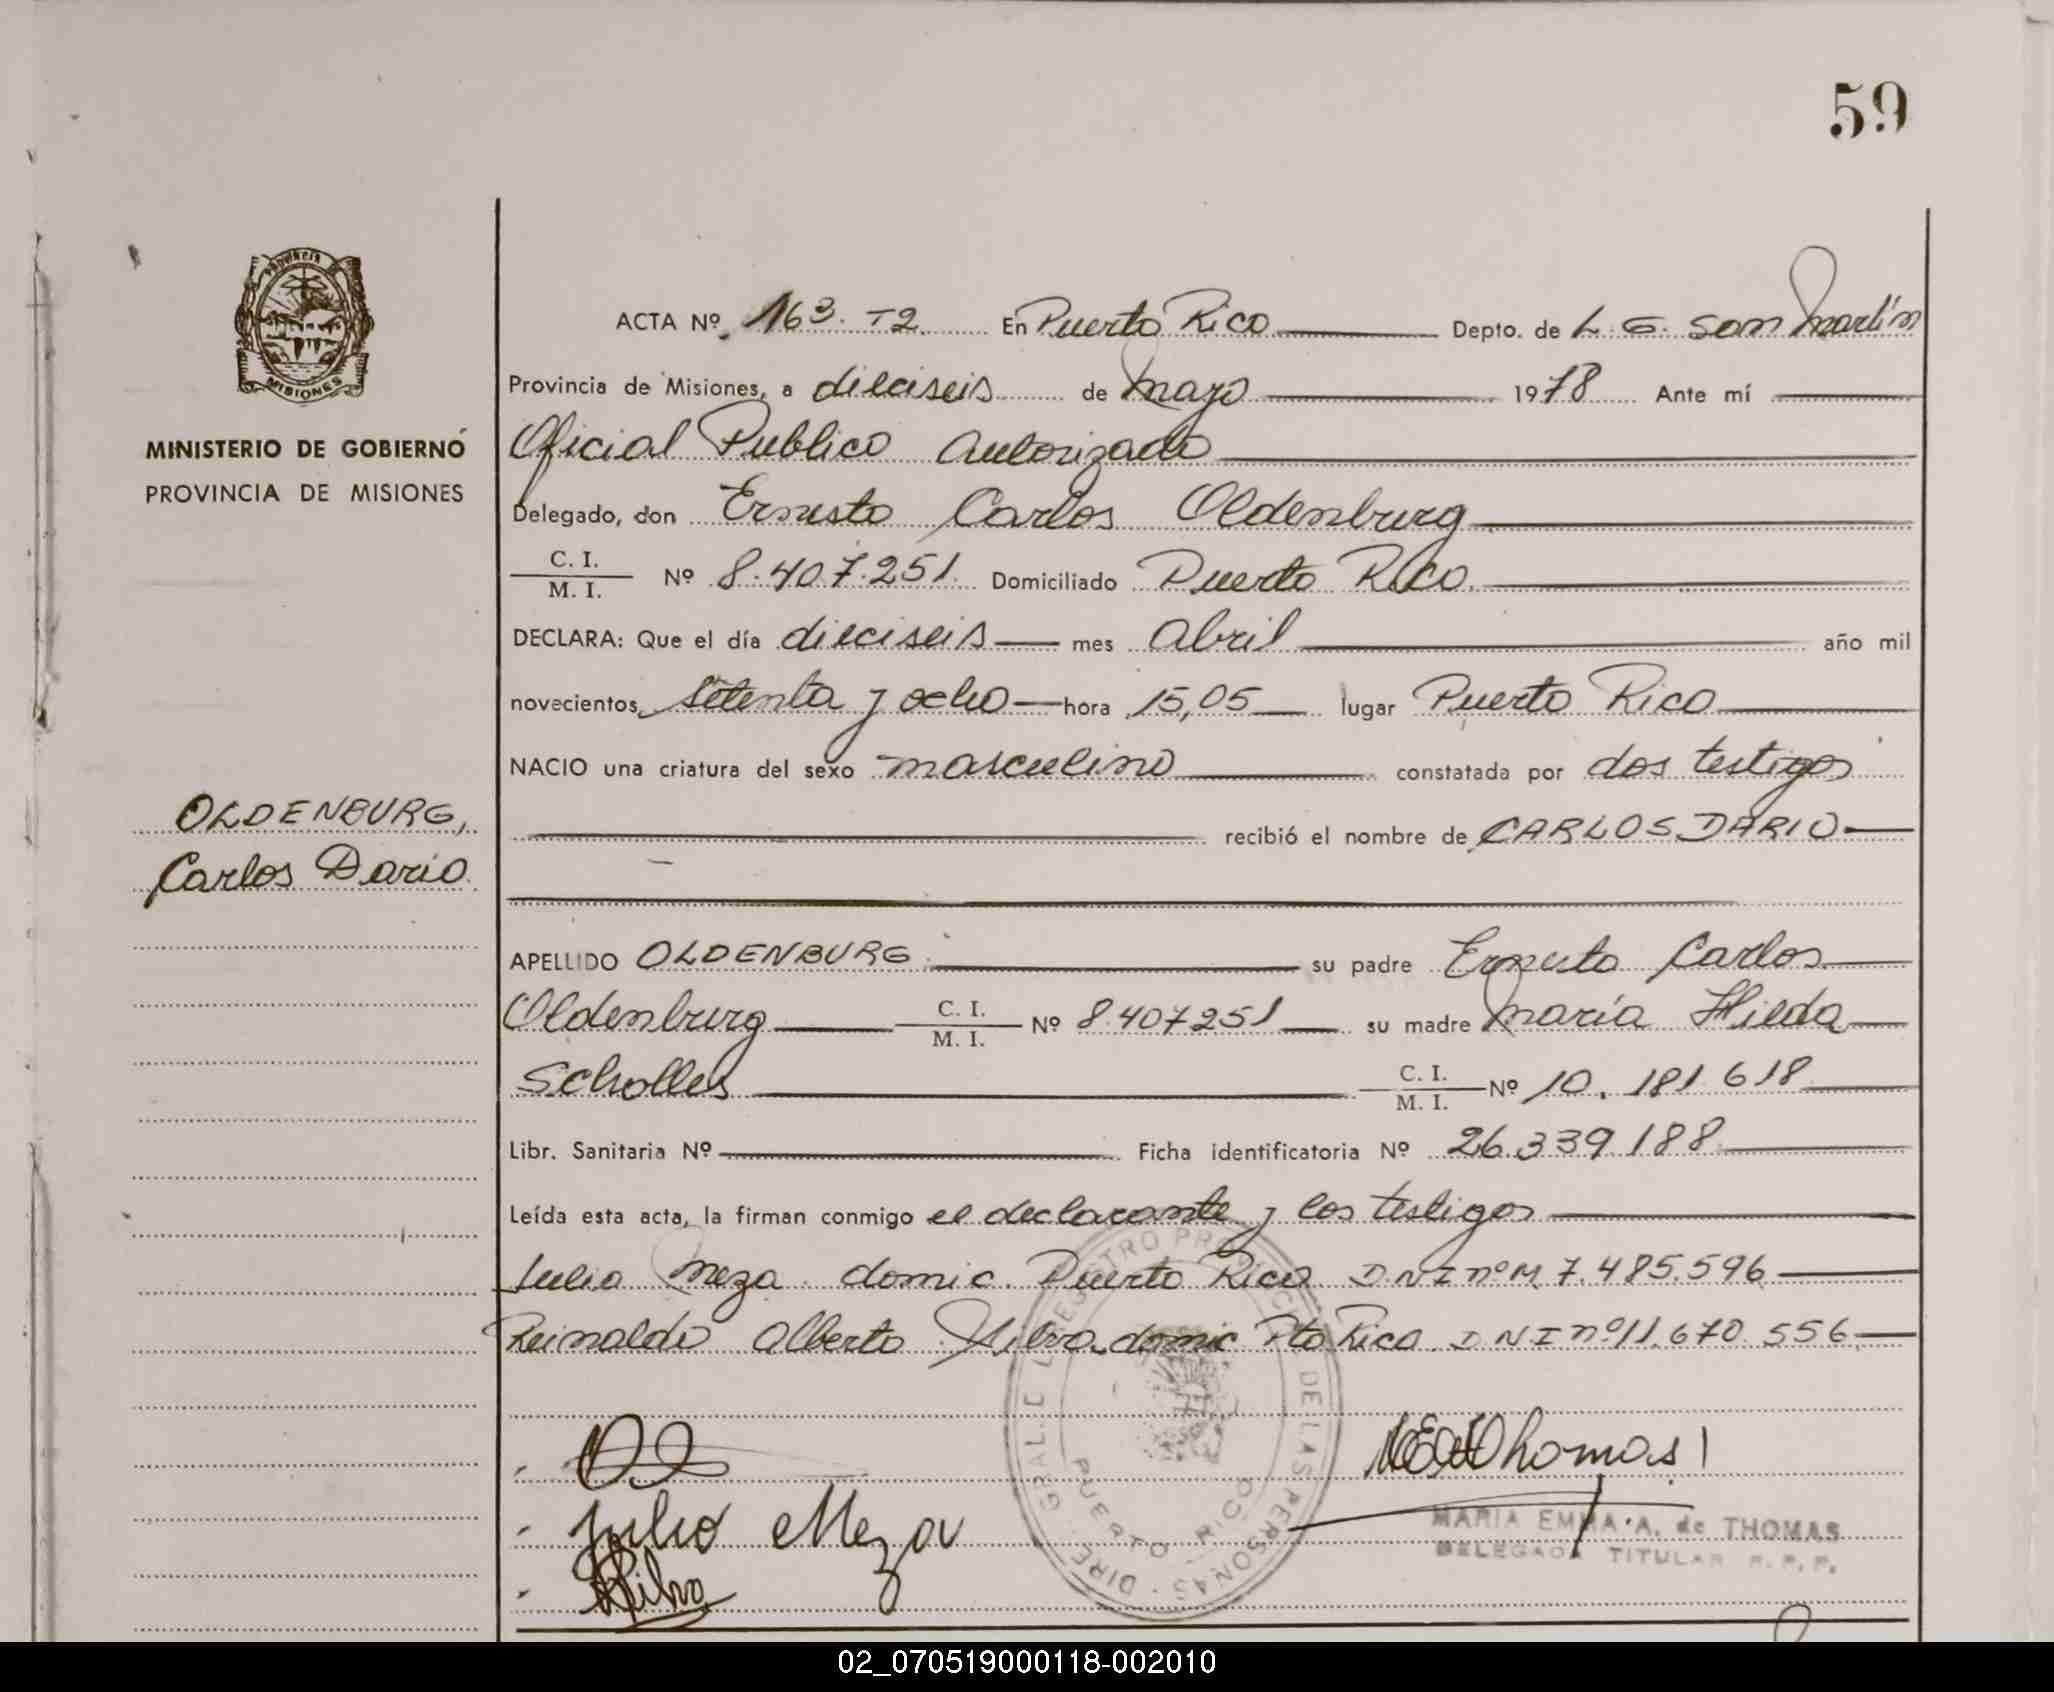 59
PROVINCIA DE
MISIONES
MINISTERIO DE GOBIERNO
PROVINCIA DE MISIONES
OLDENBURG,
Carlos Dario
ACTA Nº 163 - T2 En Puerto Rico Depto. de L. G. San Martín
Provincia de Misiones, a dieciseis de Mayo 1978 Ante mí
Oficial Publico Autorizado
Delegado, don Ernesto Carlos Oldenburg
C. I. / M. I. Nº 8.407.251 Domiciliado Puerto Rico
DECLARA: Que el día dieciseis mes Abril año mil
novecientos setenta y ocho hora 15,05 lugar Puerto Rico
NACIO una criatura del sexo masculino constatada por dos testigos
recibió el nombre de CARLOS DARIO
APELLIDO OLDENBURG su padre Ernesto Carlos
Oldenburg C. I. / M. I. Nº 8.407251 su madre María Hilda
Scholles C. I. / M. I. Nº 10.181.618
Libr. Sanitaria Nº Ficha identificatoria Nº 26.339.188
Leída esta acta, la firman conmigo el declarante y los testigos
Julio Meza domic. Puerto Rico DNI nº M 7.485.596
Reinaldo Alberto Silva domic Pto Rico DNI nº 11.670.556
Thomas
Julio Meza
Silva
MARIA EMMA A. de THOMAS
DELEGADA TITULAR R. P. P.
REGISTRO PROVINCIAL DE LAS PERSONAS
PUERTO RICO
02_070519000118-002010